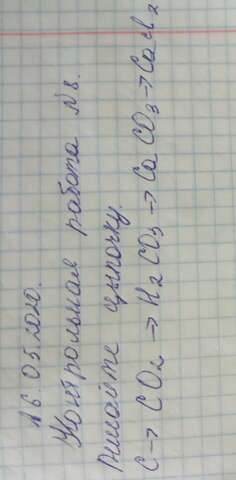 16.05.2020.
Контрольная работа №8.
Решите цепочку.
C → CO2 → H2CO3 → CaCO3 → CaCl2